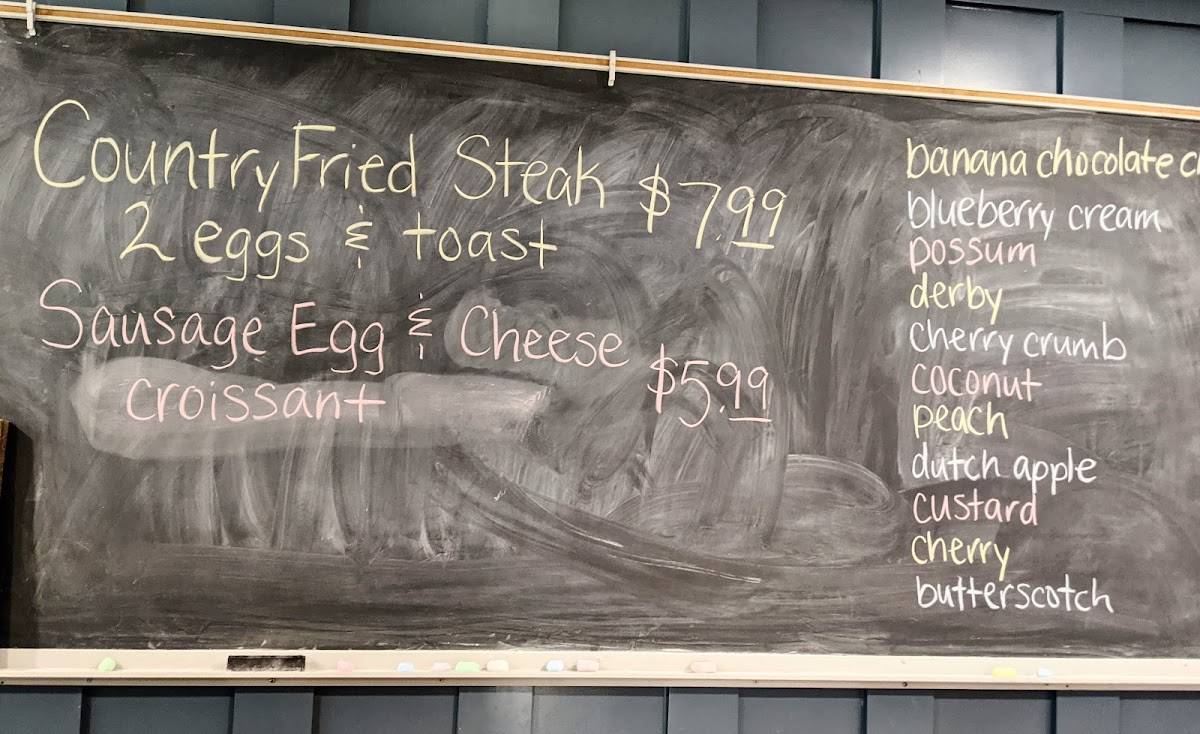 Country Fried Steak $7.99
2 eggs & toast
Sausage Egg & Cheese
croissant $5.99
banana chocolate
blueberry cream
possum
derby
cherry crumb
coconut
peach
dutch apple
custard
cherry
butterscotch